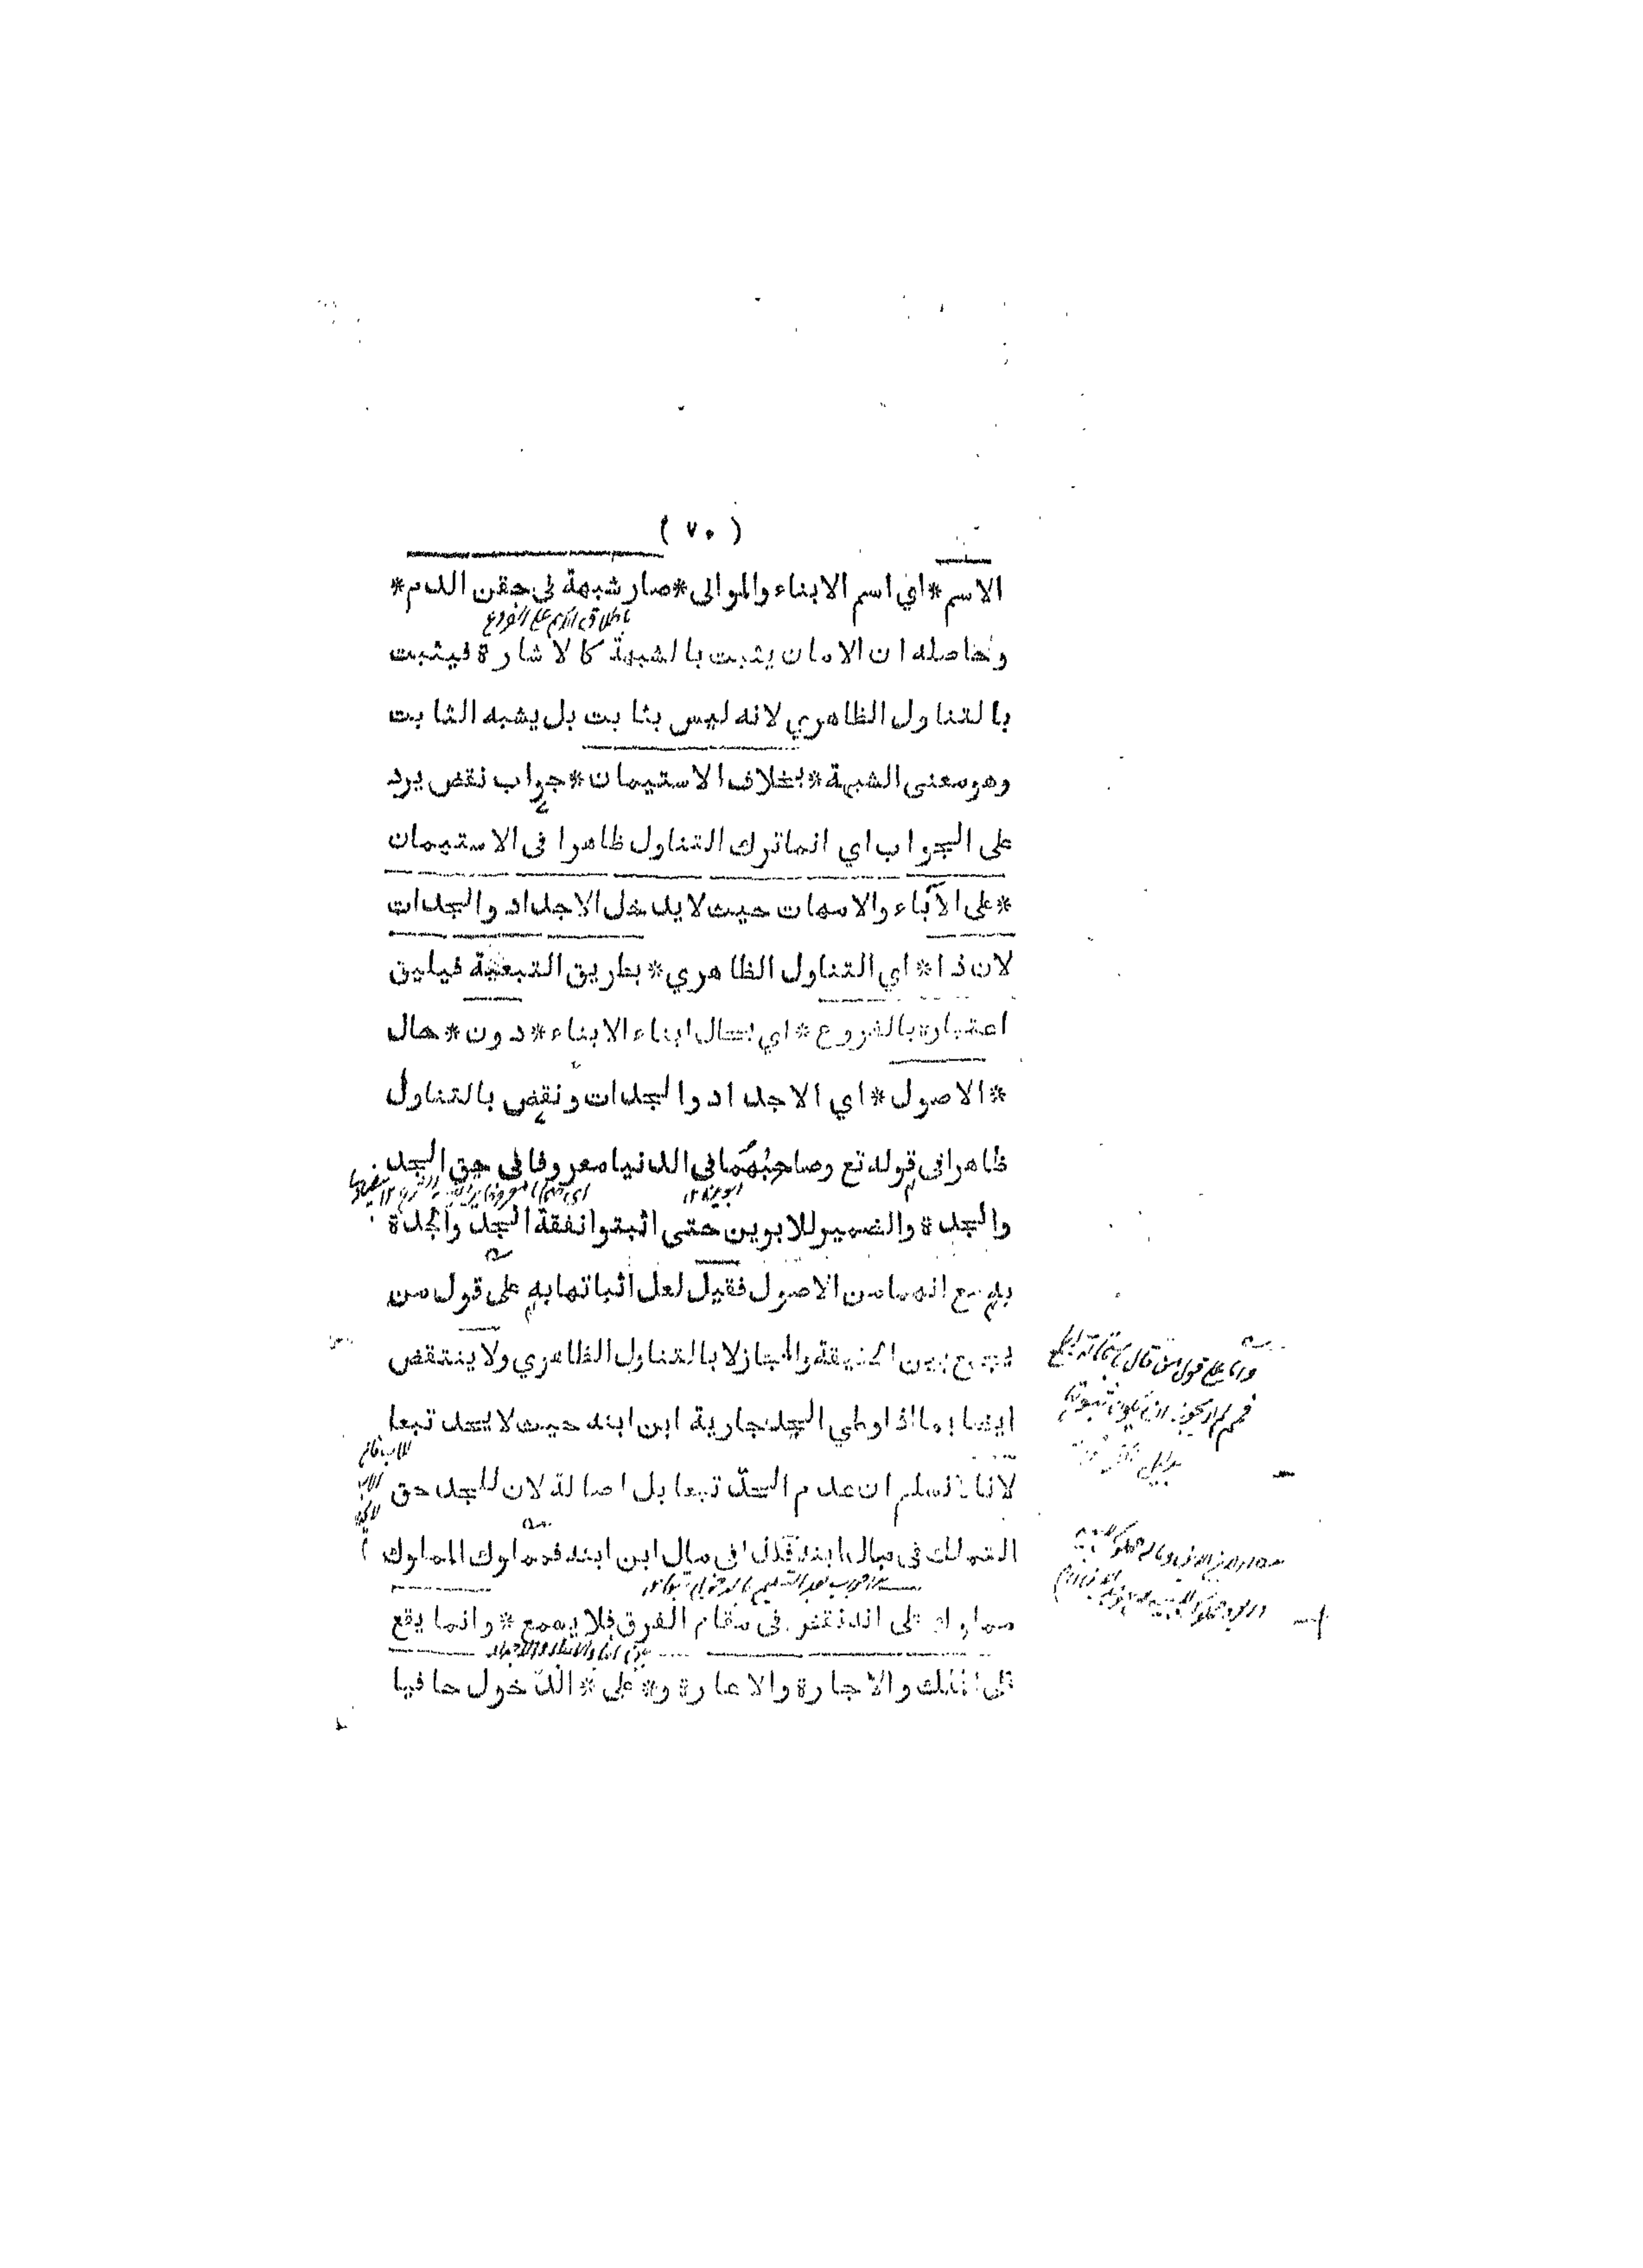 ( ٧٠ )
الاسم * اي اسم الابناء والموالى * صار شبهة في حقن الدم *
وحاصله ان الامان يثبت بالشبهة كالاشارة فيثبت
بالتناول الظاهري لانه ليس بثابت بل يشبه الثابت
وهو معنى الشبهة * بخلاف الاستيمان * جواب نقض يرد
على الجواب اي انما ترك التناول ظاهرا فى الاستيمان
* على الآباء والامهات حيث لا يدخل الاجداد والجدات
لان ذا * اي التناول الظاهري * بطريق التبعية فيليق
اعتباره بالفروع * اي بحال ابناء الابناء * دون * حال
* الاصول * اي الاجداد والجدات ونقض بالتناول
ظاهرا فى قوله تع وصاحبهما فى الدنيا معروفا فى حق الجد
والجدة والضمير للابوين حتى اثبتوا نفقة الجد والجدة
به مع انهما من الاصول فقيل لعل اثباتها به على قول من
يجمع بين الحقيقة والمجاز لا بالتناول الظاهري ولا ينتقض
ايضا بما اذا وطي الجد جارية ابن ابنه حيث لا يحد تبعا
لانا لا نسلم ان عدم الحدّ تبعا بل اصالة لان للجد حق
التملك فى مال ابنه فكذا فى مال ابن ابنه فمملوك المملوك
مملوك على انه نقض فى مقام الفرق فلا يسمع * وانما يقع
على الملك والاجارة والاعارة و * على * الدّخول حافيا